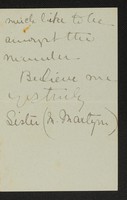 much like to be
amongst the
number.
Believe me
yrs truly
Sister (M. Martyn)